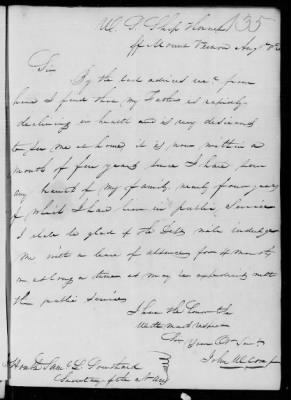 135
U. S. Ship Hornet
off Mount Vernon Augt
Sir
By the last advices recd from
home I find that my Father is rapidly
declining in health and is very desirous
to see me at home it is now within a
month of five years since I have seen
any branch of my family nearly four years
of which I have been in public service
I shall be glad if the Dept will indulge
me with a leave of absence for 4 months
or as long a time as may be expedient with
the public service
I have the honor to be
with much respect
Sir Your Obt Servt
John W
Honble Saml L. Southard
Secretary of the Navy